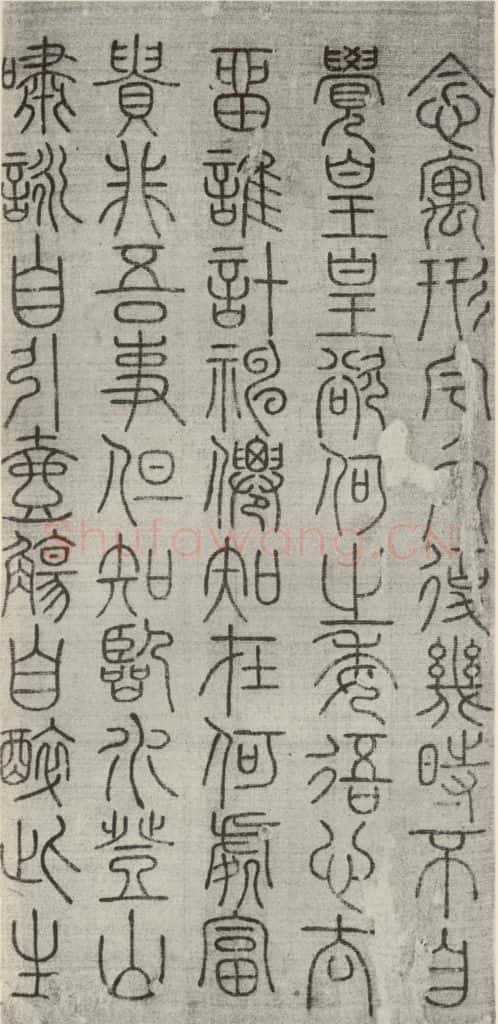 念寓形宇内復幾時不自
覺皇皇欲何之委吾心去
留誰計神僊知在何處富
貴非吾事但知臨水登山
嘯詠自引壺觴自醉此生
Shufawang.CN